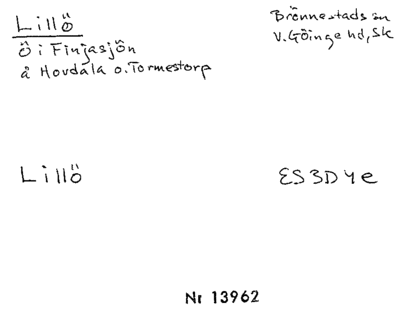 Lillö
Brönnestads sn
ö i Finjasjön
V. Göinge hd, Sk
å Hovdala o. Tormestorp
Lillö
ES3D4e
Nr 13962